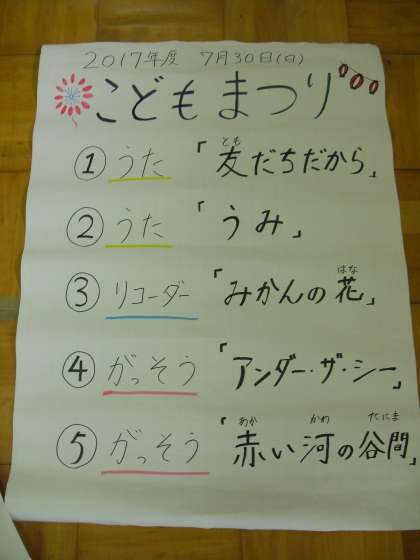 2017年度 7月30日(日)
こどもまつり
① うた 「友だちだから」
とも
② うた 「うみ」
③ リコーダー 「みかんの花」
はな
④ がっそう 「アンダー・ザ・シー」
⑤ がっそう 「赤い河の谷間」
あか かわ たにま